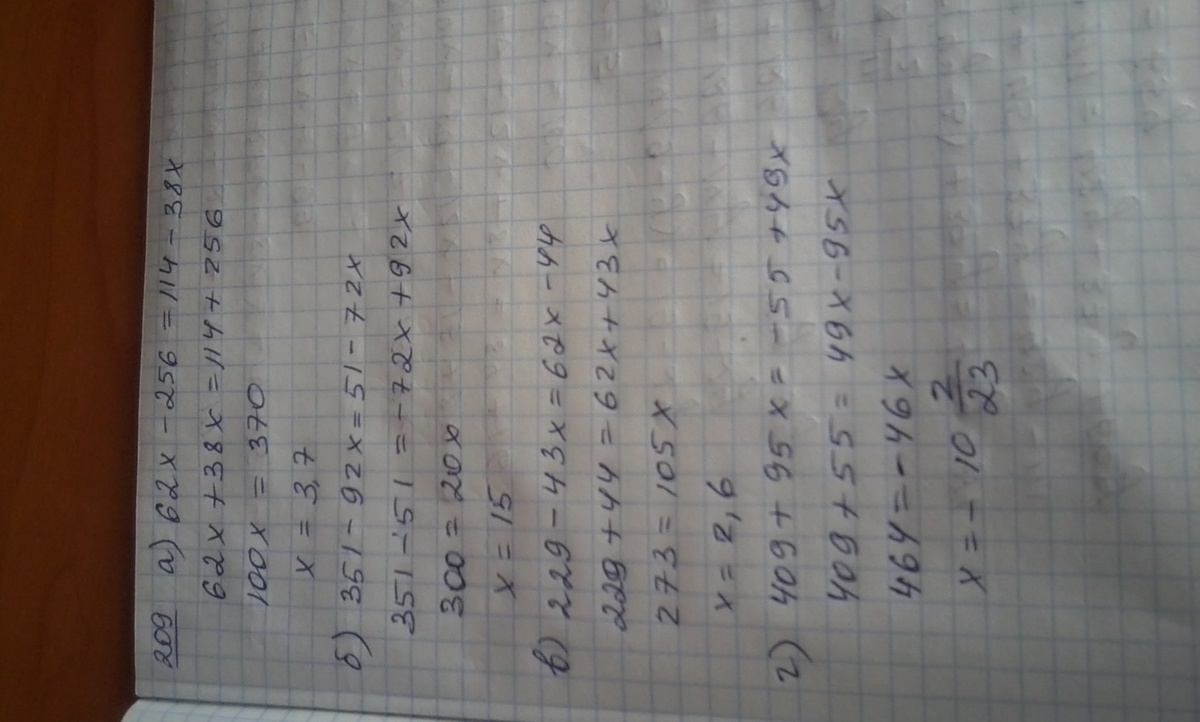 209 а) 62x - 256 = 114 - 38x
62x + 38x = 114 + 256
100x = 370
x = 3,7
б) 351 - 92x = 51 - 72x
351 - 51 = -72x + 92x
300 = 20x
x = 15
в) 229 - 43x = 62x - 44
229 + 44 = 62x + 43x
273 = 105x
x = 2,6
г) 409 + 95x = -55 + 49x
409 + 55 = 49x - 95x
464 = -46x
x = - 10 2/23